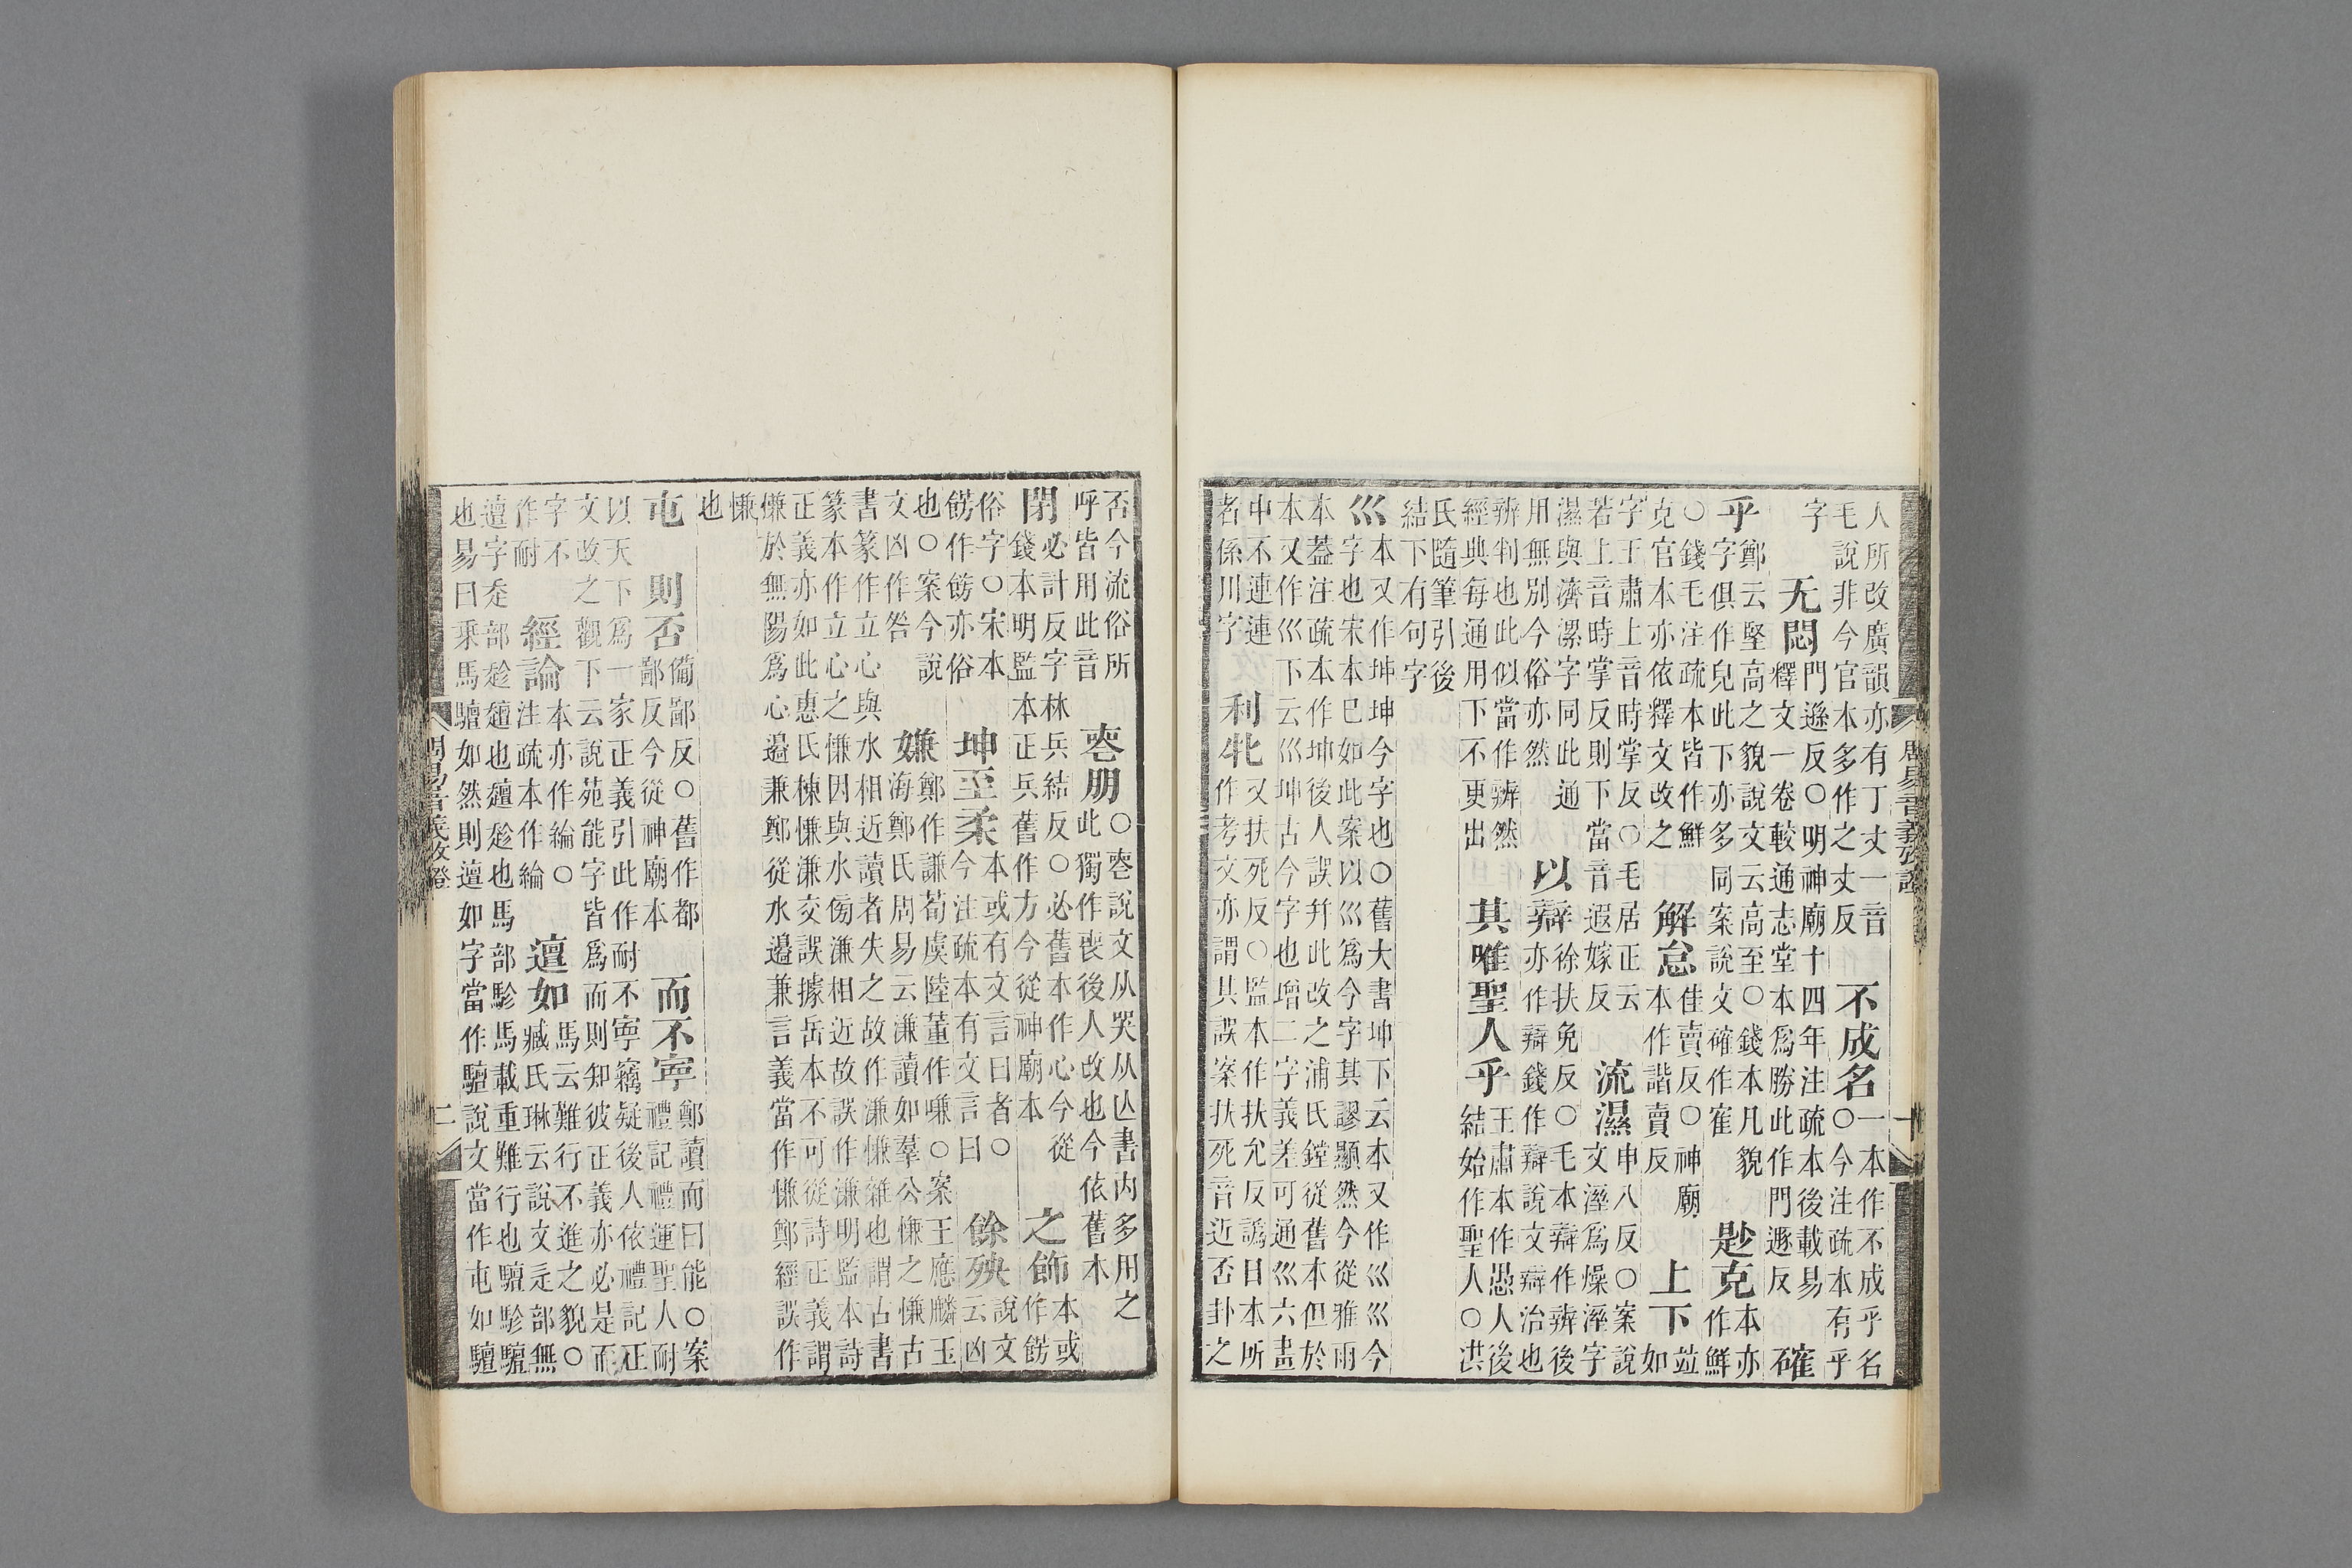 人所改廣韻亦有丁丈一音
毛說非今官本多作之丈反
不成名
一本作不成乎名
○今注疏本有乎
字
无悶
門遜反○明神廟十四年注疏本後載易
釋文一卷較通志堂本為勝此作門遯反
確
乎
鄭云堅高之貌說文云高至○錢本凡貌
字俱作皃此下亦多同案說文確作寉
尟克
本亦
作鮮
○錢毛注疏本皆作鮮
克官本亦依釋文改之
解怠
佳賣反○神廟
本作諧賣反
上下
竝
如
字王肅上音時掌反○毛居正云
若上音時掌反則下當音遐嫁反
流濕
申八反○案說
文溼為燥溼字
濕與濟漯字同此通
用無別今俗亦然
以辯
徐扶免反○毛本辯作辨後
亦作辯錢作辯說文辯治也
辨判也此似當作辨然
經典每通用下不更出
其唯聖人乎
王肅本作愚人後
結始作聖人○洪
氏隨筆引後
結下有句字
巛
本又作坤坤今字也○舊大書坤下云本又作巛巛今
字也宋本巳如此案以巛為今字其謬顯然今從雅雨
本葢注疏本作坤後人誤幷此改之浦氏鏜從舊本但於
本又作巛下云巛坤古今字也增二字義差可通巛六畫
中不連連
者係川字
利牝
又扶死反○監本作扶允反譌日本所
作考文亦謂其誤案扶死音近否卦之
周易音義攷證
否今流俗所
呼皆用此音
喪朋
○喪說文从哭从亾書内多用之
此獨作喪後人改也今依舊本
閉
必計反字林兵結反○必舊本作心今從
錢本明監本正兵舊作方今從神廟本
之飾
本或
作餝
俗字○宋本
餝作餙亦俗
坤至柔
本或有文言曰者○
今注疏本有文言曰
餘殃
說文
云凶
也○案今說
文凶作咎
嫌
鄭作謙荀虞陸董作嗛○案王應麟玉
海鄭氏周易云溓讀如羣公慊之慊古
書篆作立心與水相近讀者失之故作溓慊雜也謂古書
篆本作立心之慊因與水傍溓相近故誤作溓明監本詩
正義亦如此惠氏棟慊溓交誤據岳本不可從詩正義謂
慊於無陽為心邉兼鄭從水邉兼言義當作慊鄭經誤作
慊
也
屯
則否
備鄙反○舊作都
鄙反今從神廟本
而不寧
鄭讀而曰能○案
禮記禮運聖人耐
以天下為一家正義引此作耐不寧竊疑後人依禮記正
文改之觀下云說苑能字皆為而則知彼正義亦必是而
字不
作耐
經論
本亦作綸○
注疏本作綸
邅如
馬云難行不進之貌○
臧氏琳云說文辵部無
邅字走部趁䞴也䞴趁也馬部駗馬載重難行也驙駗驙
也易曰乘馬驙如然則邅如字當作驙說文當作屯如驙
周易音義攷證